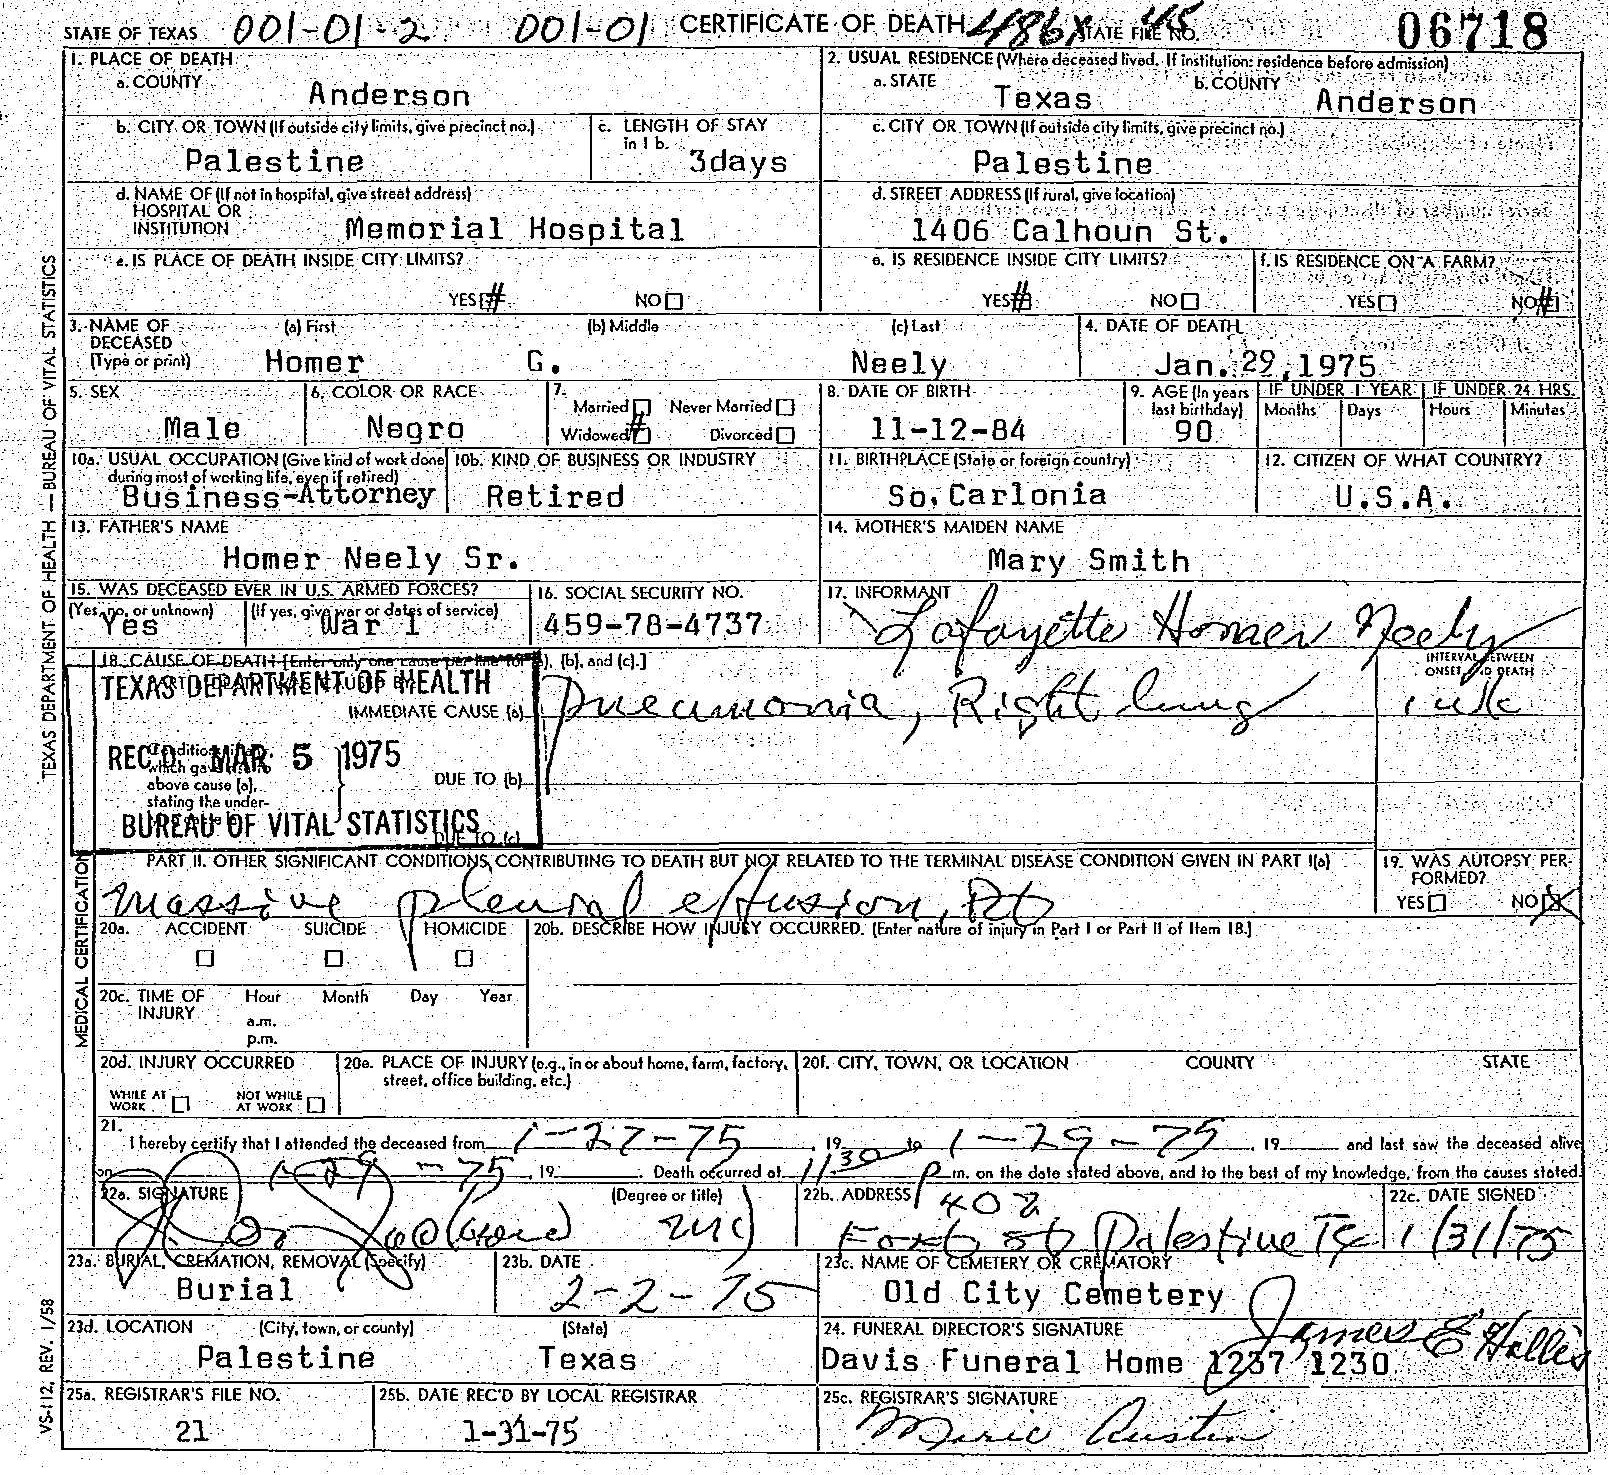 STATE OF TEXAS 001-01-2 001-01 CERTIFICATE OF DEATH 486X STATE FILE NO. 45 06718
1. PLACE OF DEATH
a. COUNTY
Anderson
2. USUAL RESIDENCE (Where deceased lived. If institution: residence before admission)
a. STATE b. COUNTY
Texas Anderson
b. CITY OR TOWN (If outside city limits, give precinct no.)
Palestine
c. LENGTH OF STAY
in 1 b.
3days
c. CITY OR TOWN (If outside city limits, give precinct no.)
Palestine
d. NAME OF (If not in hospital, give street address)
HOSPITAL OR
INSTITUTION
Memorial Hospital
d. STREET ADDRESS (If rural, give location)
1406 Calhoun St.
e. IS PLACE OF DEATH INSIDE CITY LIMITS?
YES # NO
e. IS RESIDENCE INSIDE CITY LIMITS?
YES # NO
f. IS RESIDENCE ON A FARM?
YES NO #
3. NAME OF
DECEASED
(Type or print)
(a) First (b) Middle (c) Last
Homer G. Neely
4. DATE OF DEATH
Jan. 29, 1975
5. SEX
Male
6. COLOR OR RACE
Negro
7.
Married Never Married
Widowed # Divorced
8. DATE OF BIRTH
11-12-84
9. AGE (In years
last birthday)
90
IF UNDER 1 YEAR IF UNDER 24 HRS.
Months Days Hours Minutes
10a. USUAL OCCUPATION (Give kind of work done
during most of working life, even if retired)
Business-Attorney
10b. KIND OF BUSINESS OR INDUSTRY
Retired
11. BIRTHPLACE (State or foreign country)
So. Carlonia
12. CITIZEN OF WHAT COUNTRY?
U.S.A.
13. FATHER'S NAME
Homer Neely Sr.
14. MOTHER'S MAIDEN NAME
Mary Smith
15. WAS DECEASED EVER IN U.S. ARMED FORCES?
(Yes, no, or unknown) (If yes, give war or dates of service)
Yes War 1
16. SOCIAL SECURITY NO.
459-78-4737
17. INFORMANT
Lafayette Homer Neely
18. CAUSE OF DEATH [Enter only one cause per line for (a), (b), and (c).]
INTERVAL BETWEEN
ONSET AND DEATH
TEXAS DEPARTMENT OF HEALTH
REC'D. MAR 5 1975
BUREAU OF VITAL STATISTICS
IMMEDIATE CAUSE (a)
Pneumonia, Right lung 1 wk
Conditions, if any,
which gave rise to
above cause (a),
stating the under-
DUE TO (b)
DUE TO (c)
PART II. OTHER SIGNIFICANT CONDITIONS CONTRIBUTING TO DEATH BUT NOT RELATED TO THE TERMINAL DISEASE CONDITION GIVEN IN PART I(a)
massive pleural effusion, Rt
19. WAS AUTOPSY PER-
FORMED?
YES NO X
20a. ACCIDENT SUICIDE HOMICIDE
20b. DESCRIBE HOW INJURY OCCURRED. (Enter nature of injury in Part I or Part II of Item 18.)
20c. TIME OF
INJURY
Hour Month Day Year
a.m.
p.m.
20d. INJURY OCCURRED
WHILE AT
WORK
NOT WHILE
AT WORK
20e. PLACE OF INJURY (e.g., in or about home, farm, factory,
street, office building, etc.)
20f. CITY, TOWN, OR LOCATION COUNTY STATE
21.
I hereby certify that I attended the deceased from 1-27-75, 19 to 1-29-75, 19 and last saw the deceased alive
on 1-29-75, 19 . Death occurred at 11:30 P m. on the date stated above, and to the best of my knowledge, from the causes stated.
22a. SIGNATURE (Degree or title)
MD
22b. ADDRESS
402
Palestine Tx
22c. DATE SIGNED
1/31/75
23a. BURIAL, CREMATION, REMOVAL (Specify)
Burial
23b. DATE
2-2-75
23c. NAME OF CEMETERY OR CREMATORY
Old City Cemetery
23d. LOCATION (City, town, or county) (State)
Palestine Texas
24. FUNERAL DIRECTOR'S SIGNATURE
James E Hollis
Davis Funeral Home 1237 1230
25a. REGISTRAR'S FILE NO.
21
25b. DATE REC'D BY LOCAL REGISTRAR
1-31-75
25c. REGISTRAR'S SIGNATURE
Marie Austin
TEXAS DEPARTMENT OF HEALTH — BUREAU OF VITAL STATISTICS
MEDICAL CERTIFICATION
VS-112, REV. 1/58